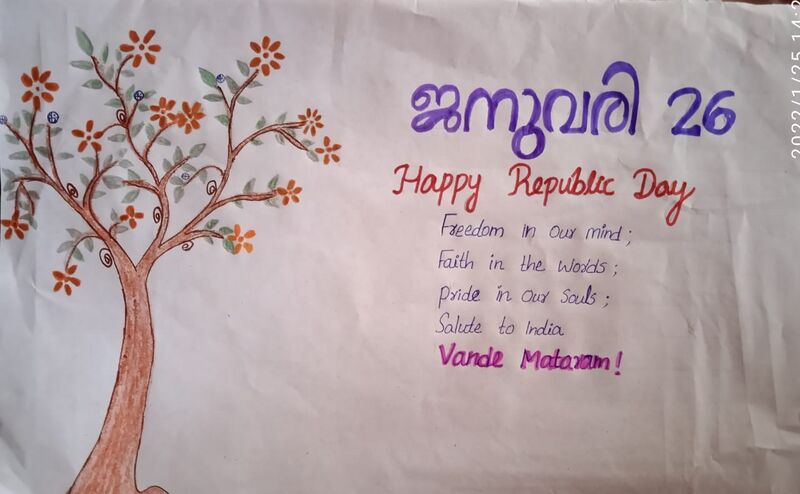 ജനുവരി 26
Happy Republic Day
Freedom in our mind;
Faith in the Words;
Pride in our Souls;
Salute to India
Vande Mataram!
2022/1/25 14:2